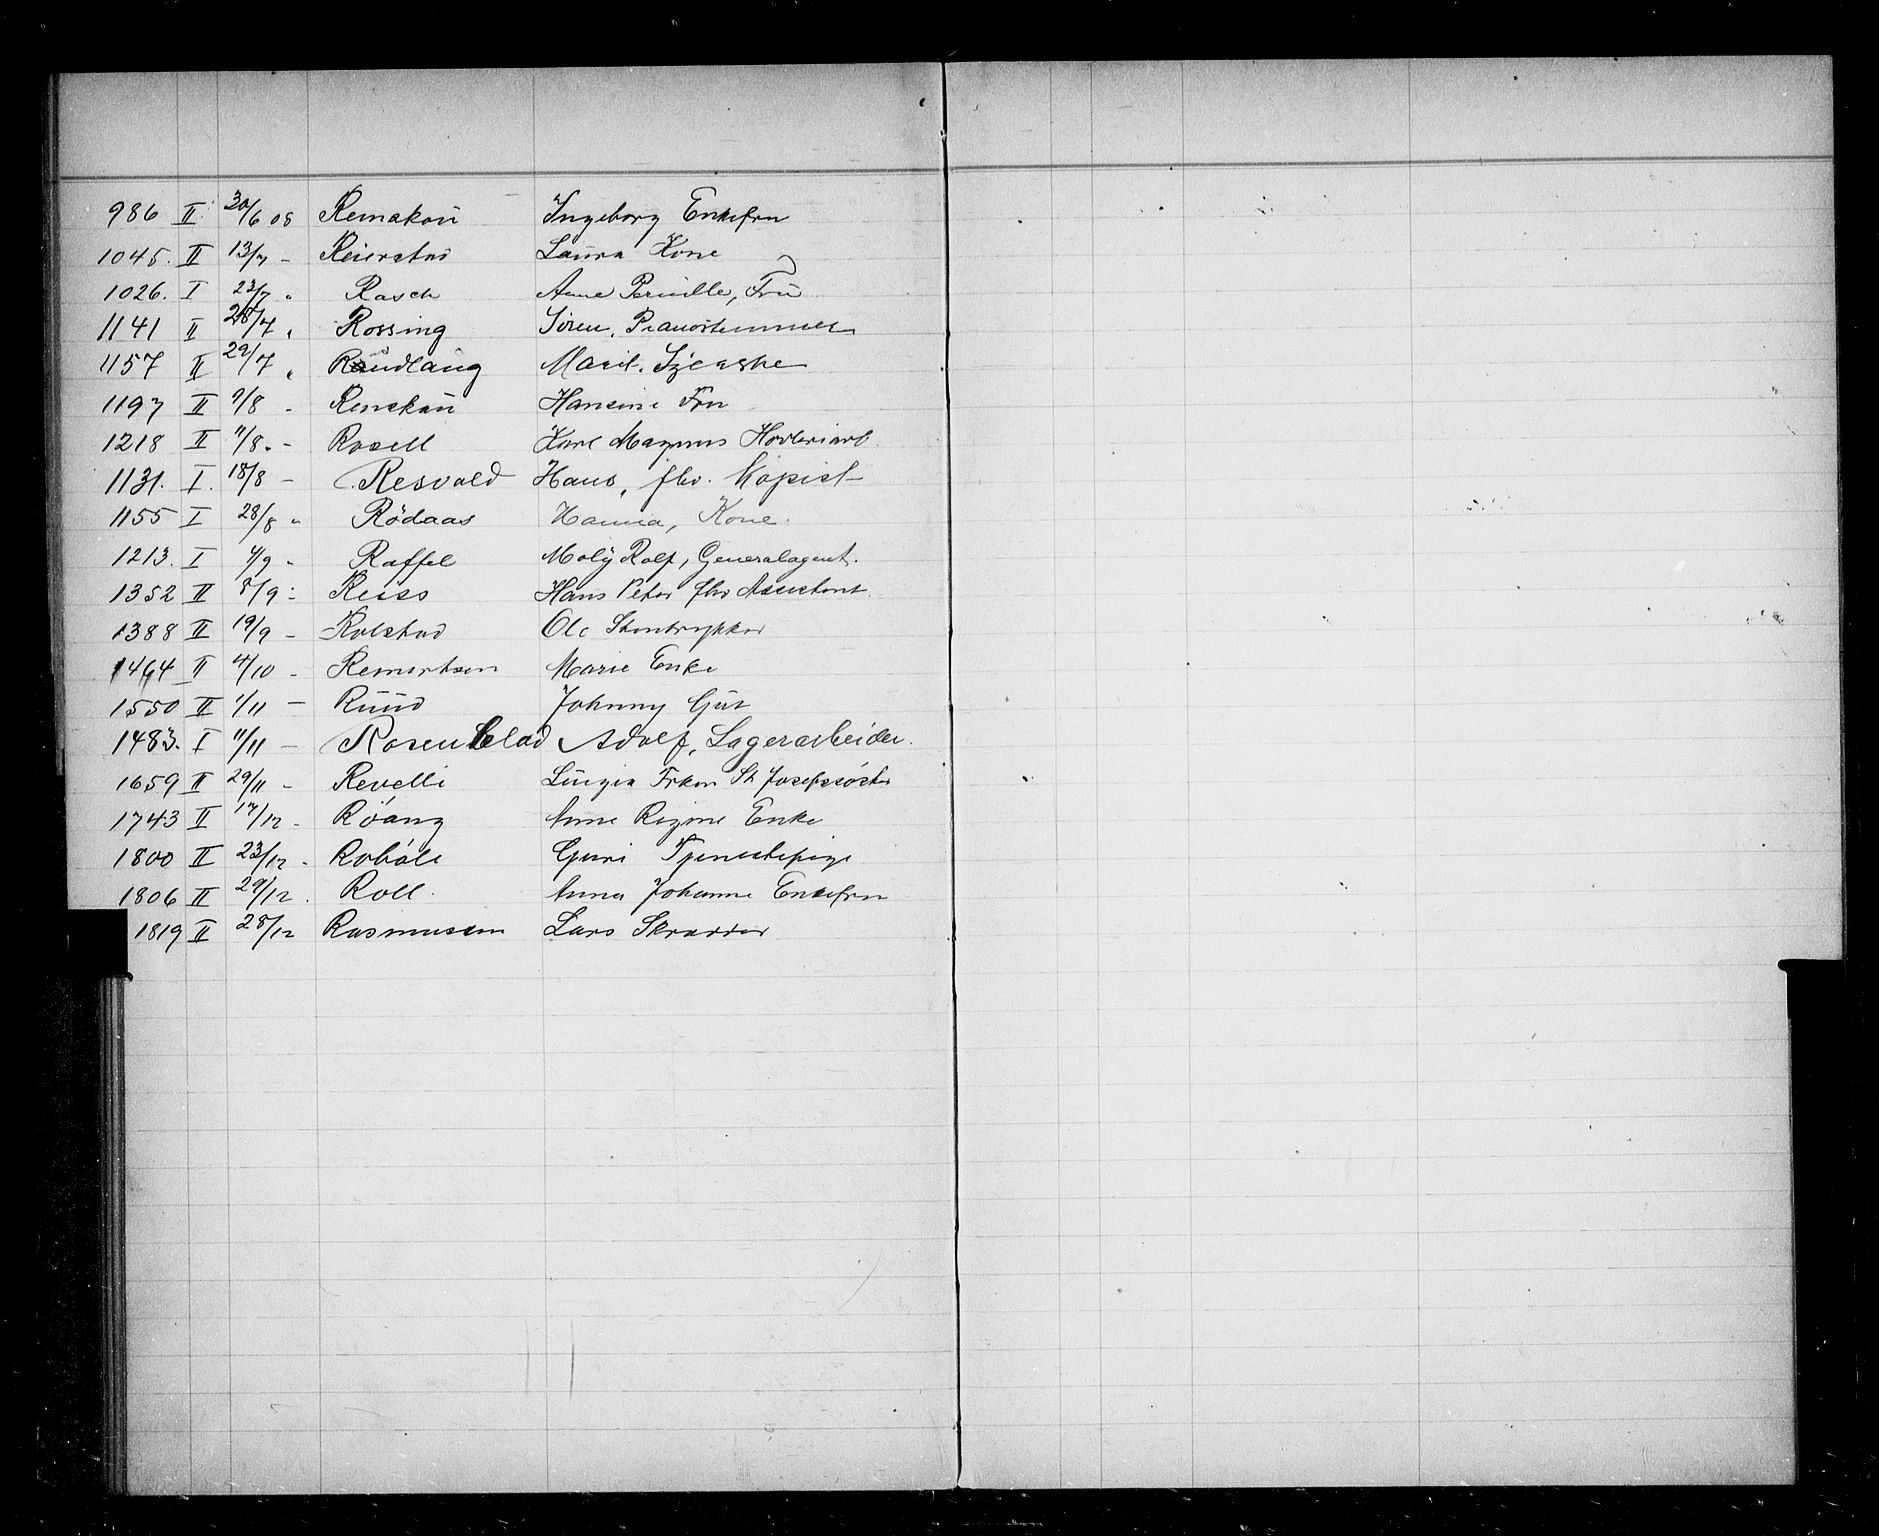 986 II 30/6 08 Remakou Ingeborg Enkefru
1045. II 13/7 - Reierstad Laura Kone
1026. I 23/7 " Rasch Anne Pernille, Fru
1141 II 28/7 " Rossing Sören, Pianostemmer
1157 II 29/7 " Rudlang Marit. Sjerske
1197 II 9/8 - Renskou Hansine Fru
1218 II 11/8. - Rosell Karl Magnus
1131. I. 18/8 - Resvold Hans, fhv. Kopist
1155 I 28/8 " Rödaas Hanna, Kone.
1213. I 4/9 " Raffel Moly Rolf, Generalagent.
1352 II 8/9 - Reiss Hans Peter fhv Assistent
1388 II 19/9 - Rolstad Ole Stentrykker
1464 II 4/10 - Remertsen Marie Enke
1550 II 1/11 - Ruud Johnny Gut
1483. I 11/11 - Rosenblad Adolf, Lagerarbeider.
1659 II 29/11 - Revelli Luigia Frken St Josefssöster
1743 II 17/12 - Röang Anne Regine Enke
1800 II 23/12 - Roböle Guri Tjenestepige
1806 II 29/12. Roll. Anna Johanne Enkefru
1819 II 28/12 Rasmussen Lars Skrædder